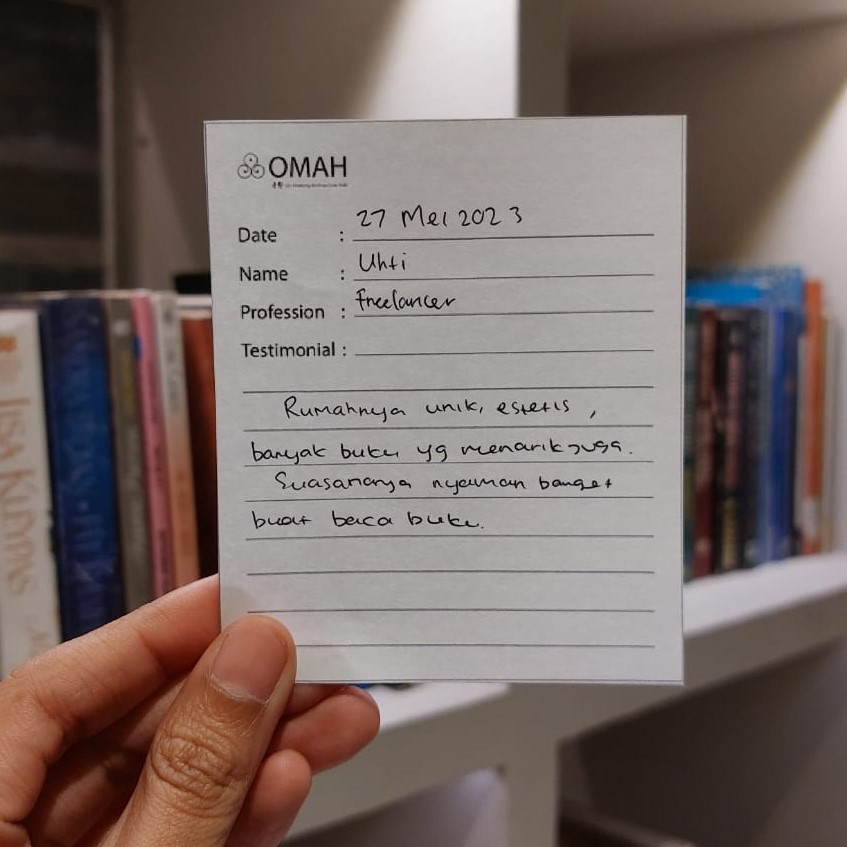 OMAH
Date : 27 Mei 2023
Name : Uhti
Profession : Freelancer
Testimonial :
Rumahnya unik, estetis ,
banyak buku yg menarik juga.
Suasananya nyaman banget
buat baca buku.
LISA KLEYPAS